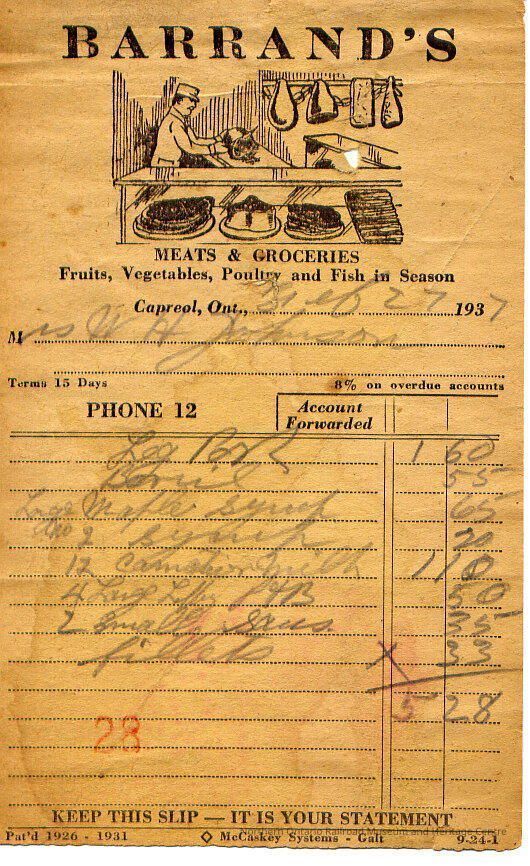 BARRAND'S
MEATS & GROCERIES
Fruits, Vegetables, Poultry and Fish in Season
Capreol, Ont., Feb 27 1937
Mrs W H Johnson
Terms 15 Days 8% on overdue accounts
PHONE 12 Account Forwarded
Leg Pork 1 60
55
Large Maple Syrup 65
2 Syrup 20
12 Carnation Milk 1 10
4 Large 50
2 Small 35
fillets X 33
5 28
28
KEEP THIS SLIP — IT IS YOUR STATEMENT
Northern Ontario Railroad Museum and Heritage Centre
Pat'd 1926 - 1931 ◇ McCaskey Systems - Galt 9-24-1